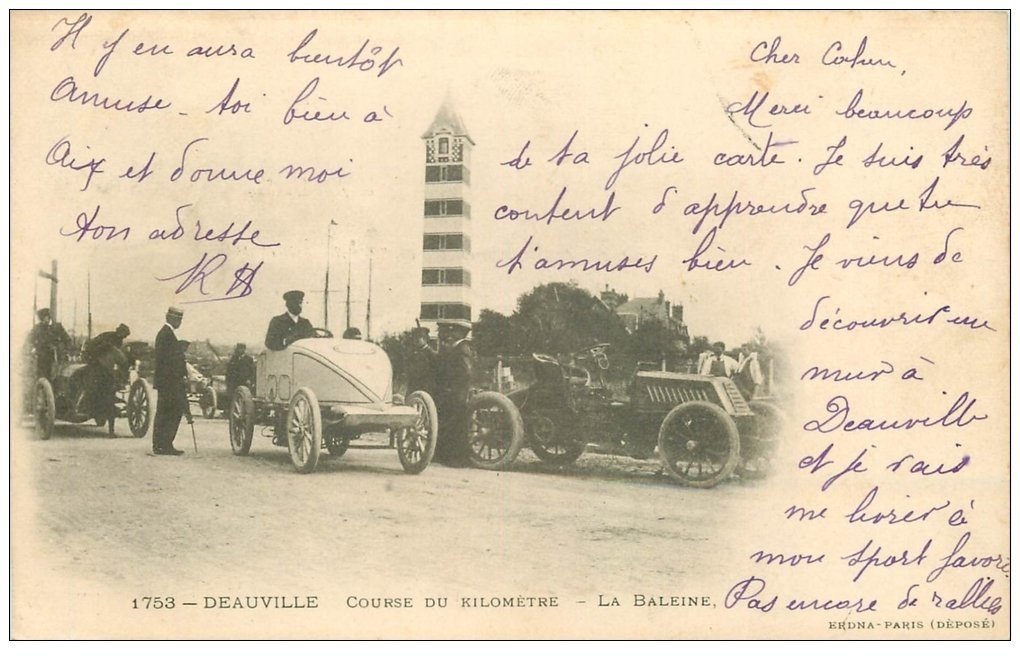 Cher Cohen,
Merci beaucoup
de ta jolie carte. Je suis très
content d'apprendre que tu
t'amuses bien. Je viens de
découvrir un
mur à
Deauville
et je vais
me livrer à
mon sport favori.
Pas encore de rallies
Il y en aura bientôt
Amuse-toi bien à
Aix et donne moi
ton adresse
RH
1753 — DEAUVILLE COURSE DU KILOMÈTRE – LA BALEINE,
ERDNA-PARIS (DÈPOSÉ)